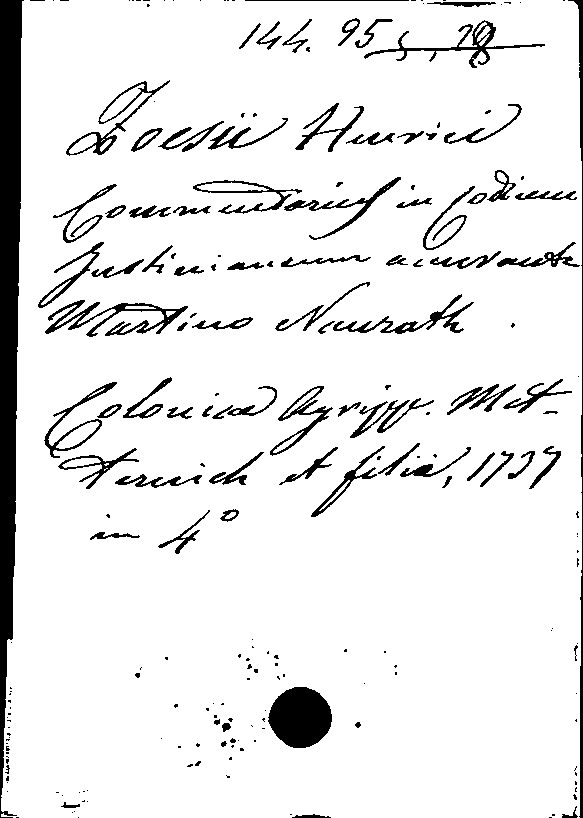 144. 95 5, 28
Zoesii Henrici
Commentarius in Codicem
Justinianeum accurante
Martino Naurath.
Coloniae Agripp. Met-
ternich et filii, 1737
in 4°